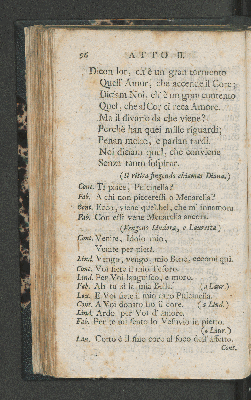 96 ATTO II.
Dicon lor, ch'è un gran tormento
Quell' Amor, che accende il Core;
Diciam Noi, ch'è un gran contento
Quel, che al Cor ci reca Amore.
Ma il divario da che viene?
Perchè han quei mille riguardi;
Penan molto, e parlan tardi.
Noi diciam quel, che conviene
Senza tanto sospirar.
(si ritira fingendo chiamar Diana.)
Cont. Ti piace, Pulcinella?
Fab. A chi non piacerelli o Menarella?
Cont. Ecco, viene quel bel, che m' innamora
Fab. Con essi vene Menarella ancora.
(Vengono Lindora, e Lauretta)
Cont. Venite, Idolo mio,
Venite per pietà.
Lind. Vengo, vengo, mio Bene, eccomi quì.
Cont. Voi siete il mio Tesoro.
Lind. Per Voi languisco, e moro.
Fab. Ah tu si la mia Bella. (a Laur.)
Lau. E Voi siete il mio caro Pulcinella.
Cont. A Voi donato ho il core. (a Lind.)
Lind. Ardo per Voi d' amore.
Fab. Per te me sento lo Vesuvio in pietto.
(a Laur.)
Lau. Cotto è il mio core al foco dell' affetto.
Cont.